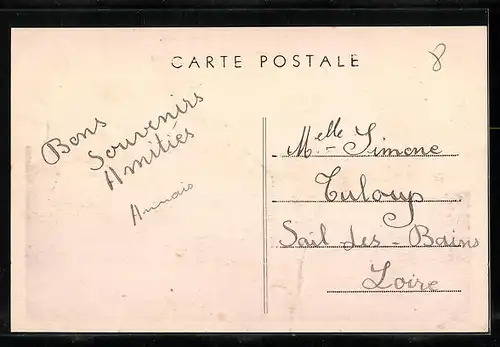 CARTE POSTALE
8
Bons
Souvenirs
Amitiés
Melle Simone
Tuloup
Sail des-Bains
Loire